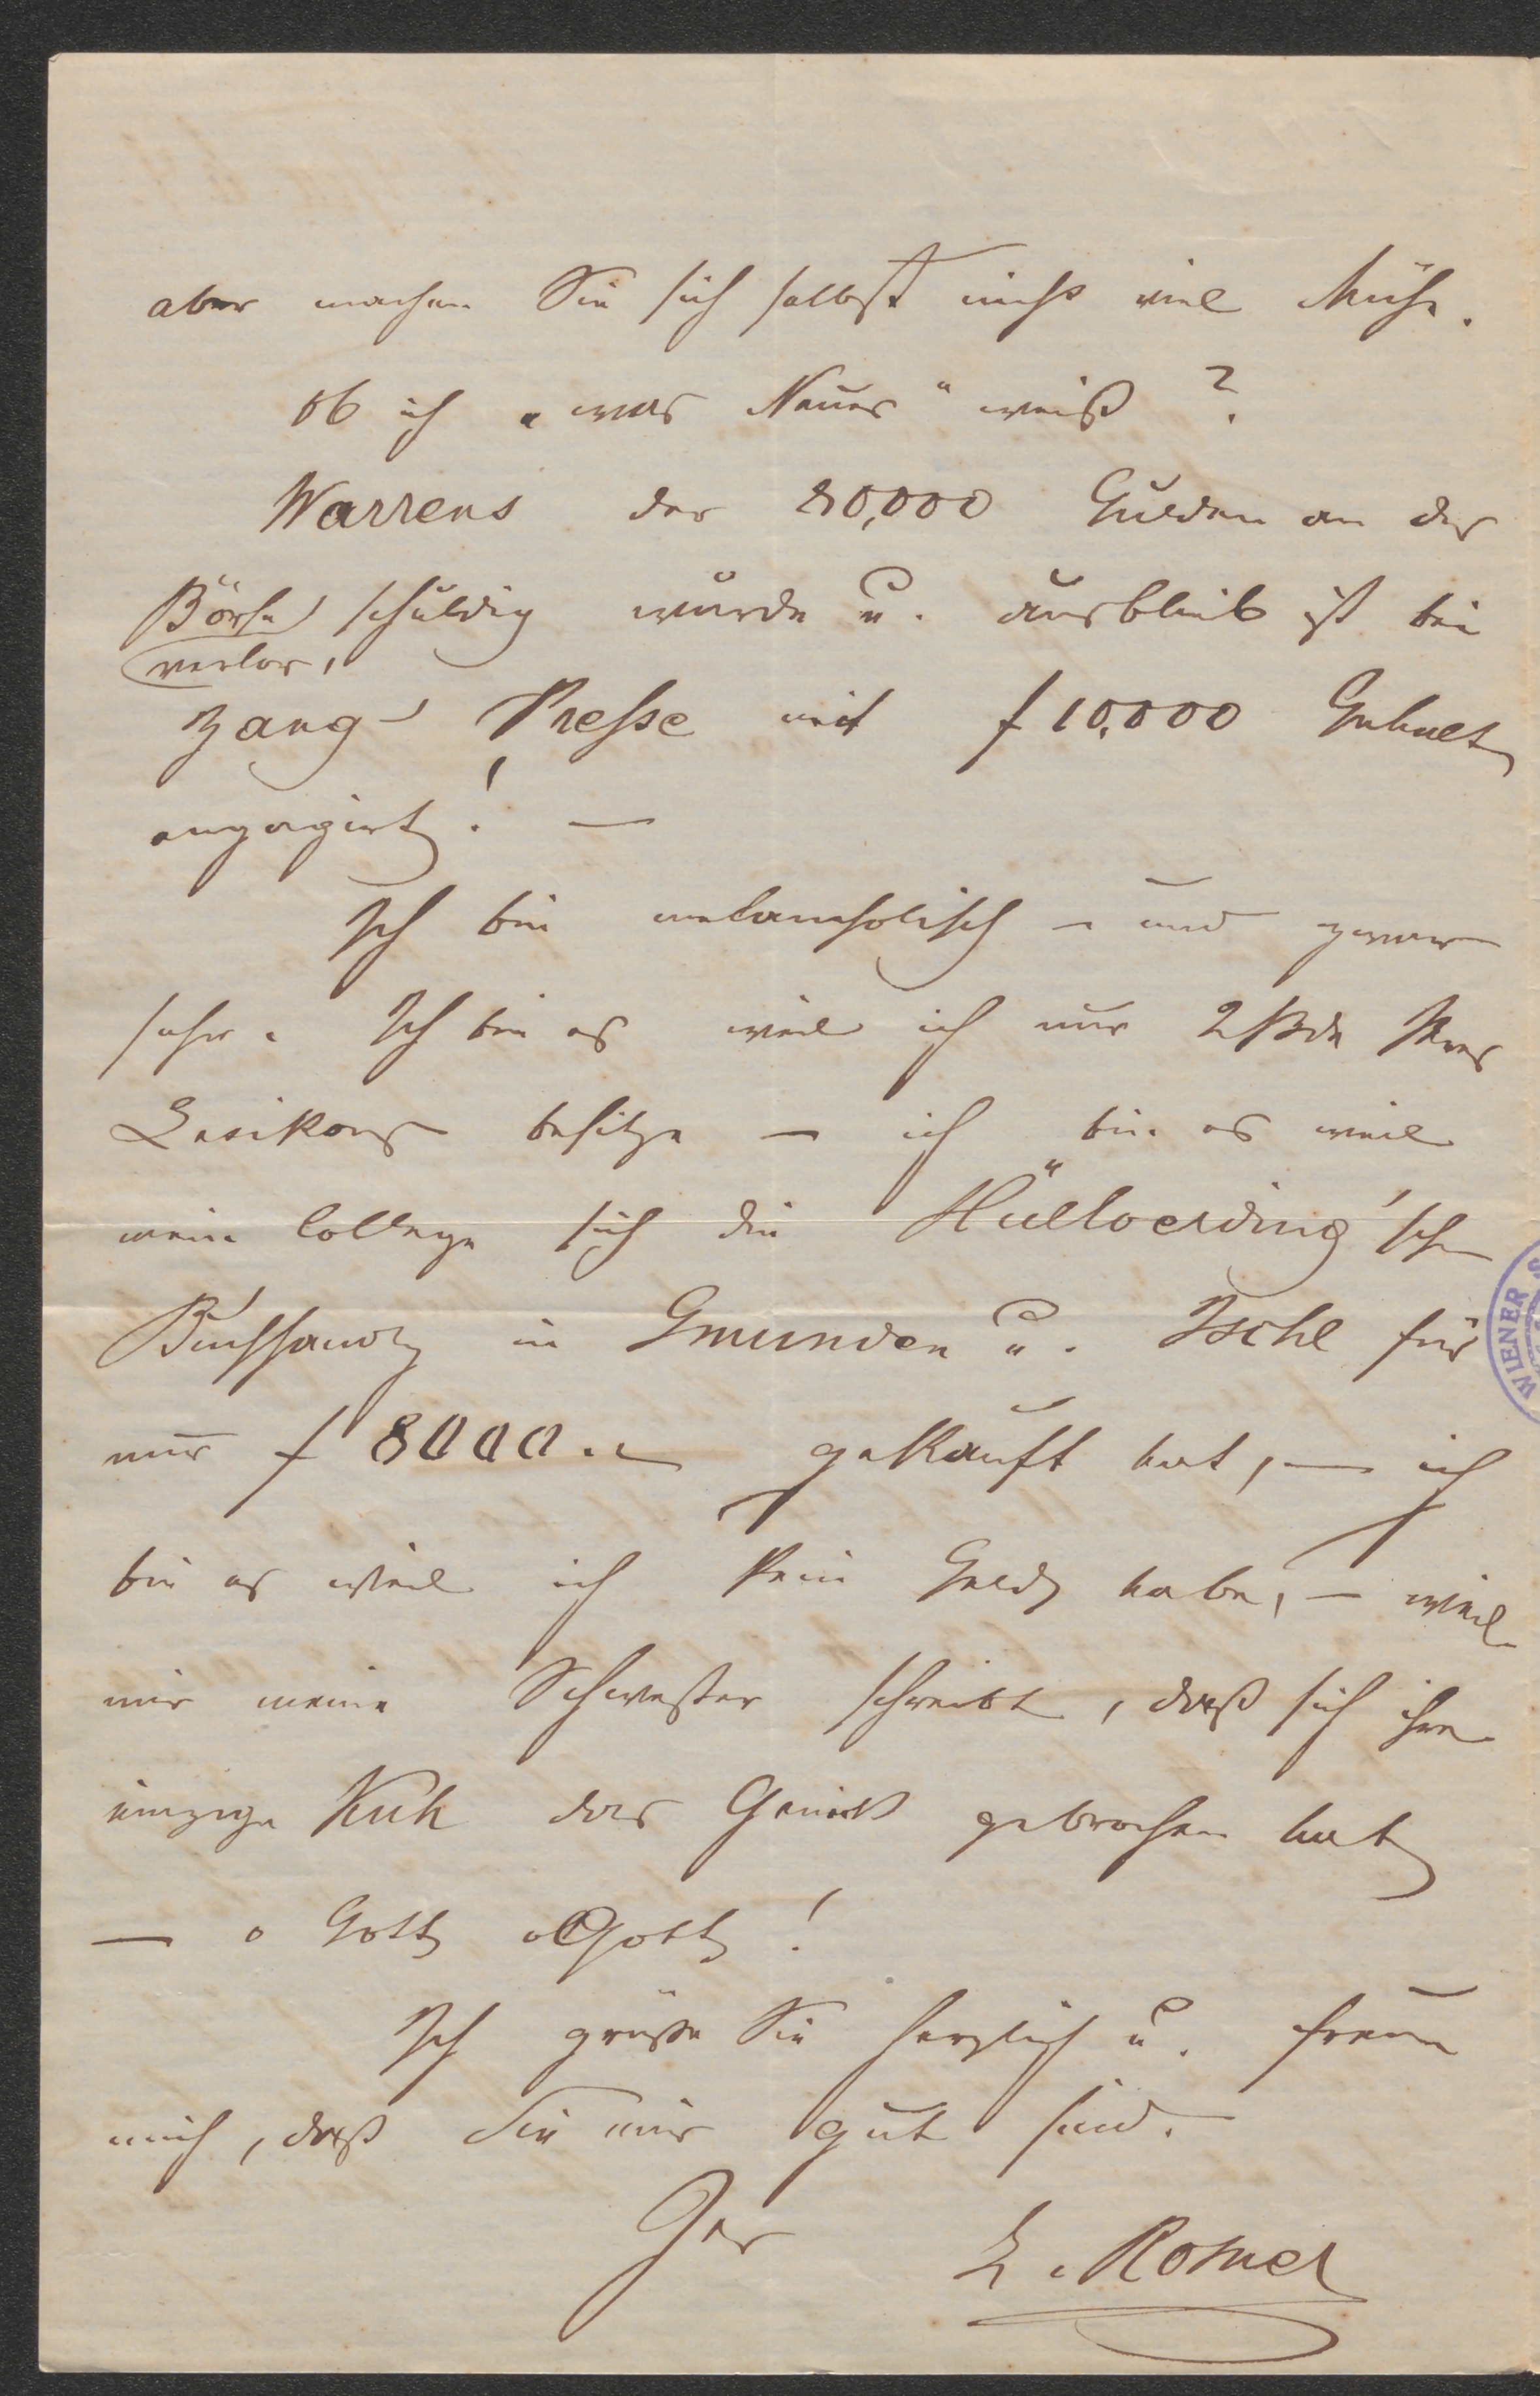 aber machen Sie sich selbst nicht viel Mühe.
ob ich „was Neues" weiß?
Warrens der 80,000 Gulden an der
Börse schuldig wurde u. ausblieb ist bei
verlor,
Zang' Presse mit f 10,000 Gehalt
engagirt! —
Ich bin melancholisch – und zwar
sehr. Ich bin es weil ich nur 2 Bde Ihres
Lexikons besitze – ich bin es weil
mein College sich die "Hüllverding'sche
Buchhandlg in Gmunden u. Ischl für
nur f 8000.– gekauft hat, – ich
bin es weil ich kein Geld habe, – weil
mir meine Schwester schreibt, daß sich ihre
einzige Kuh das Genick gebrochen hat
– o Gott o Gott!
Ich grüße Sie herzlich u. freue
mich, daß Sie mir gut sind.
Ihr L. Rosner
WIENER